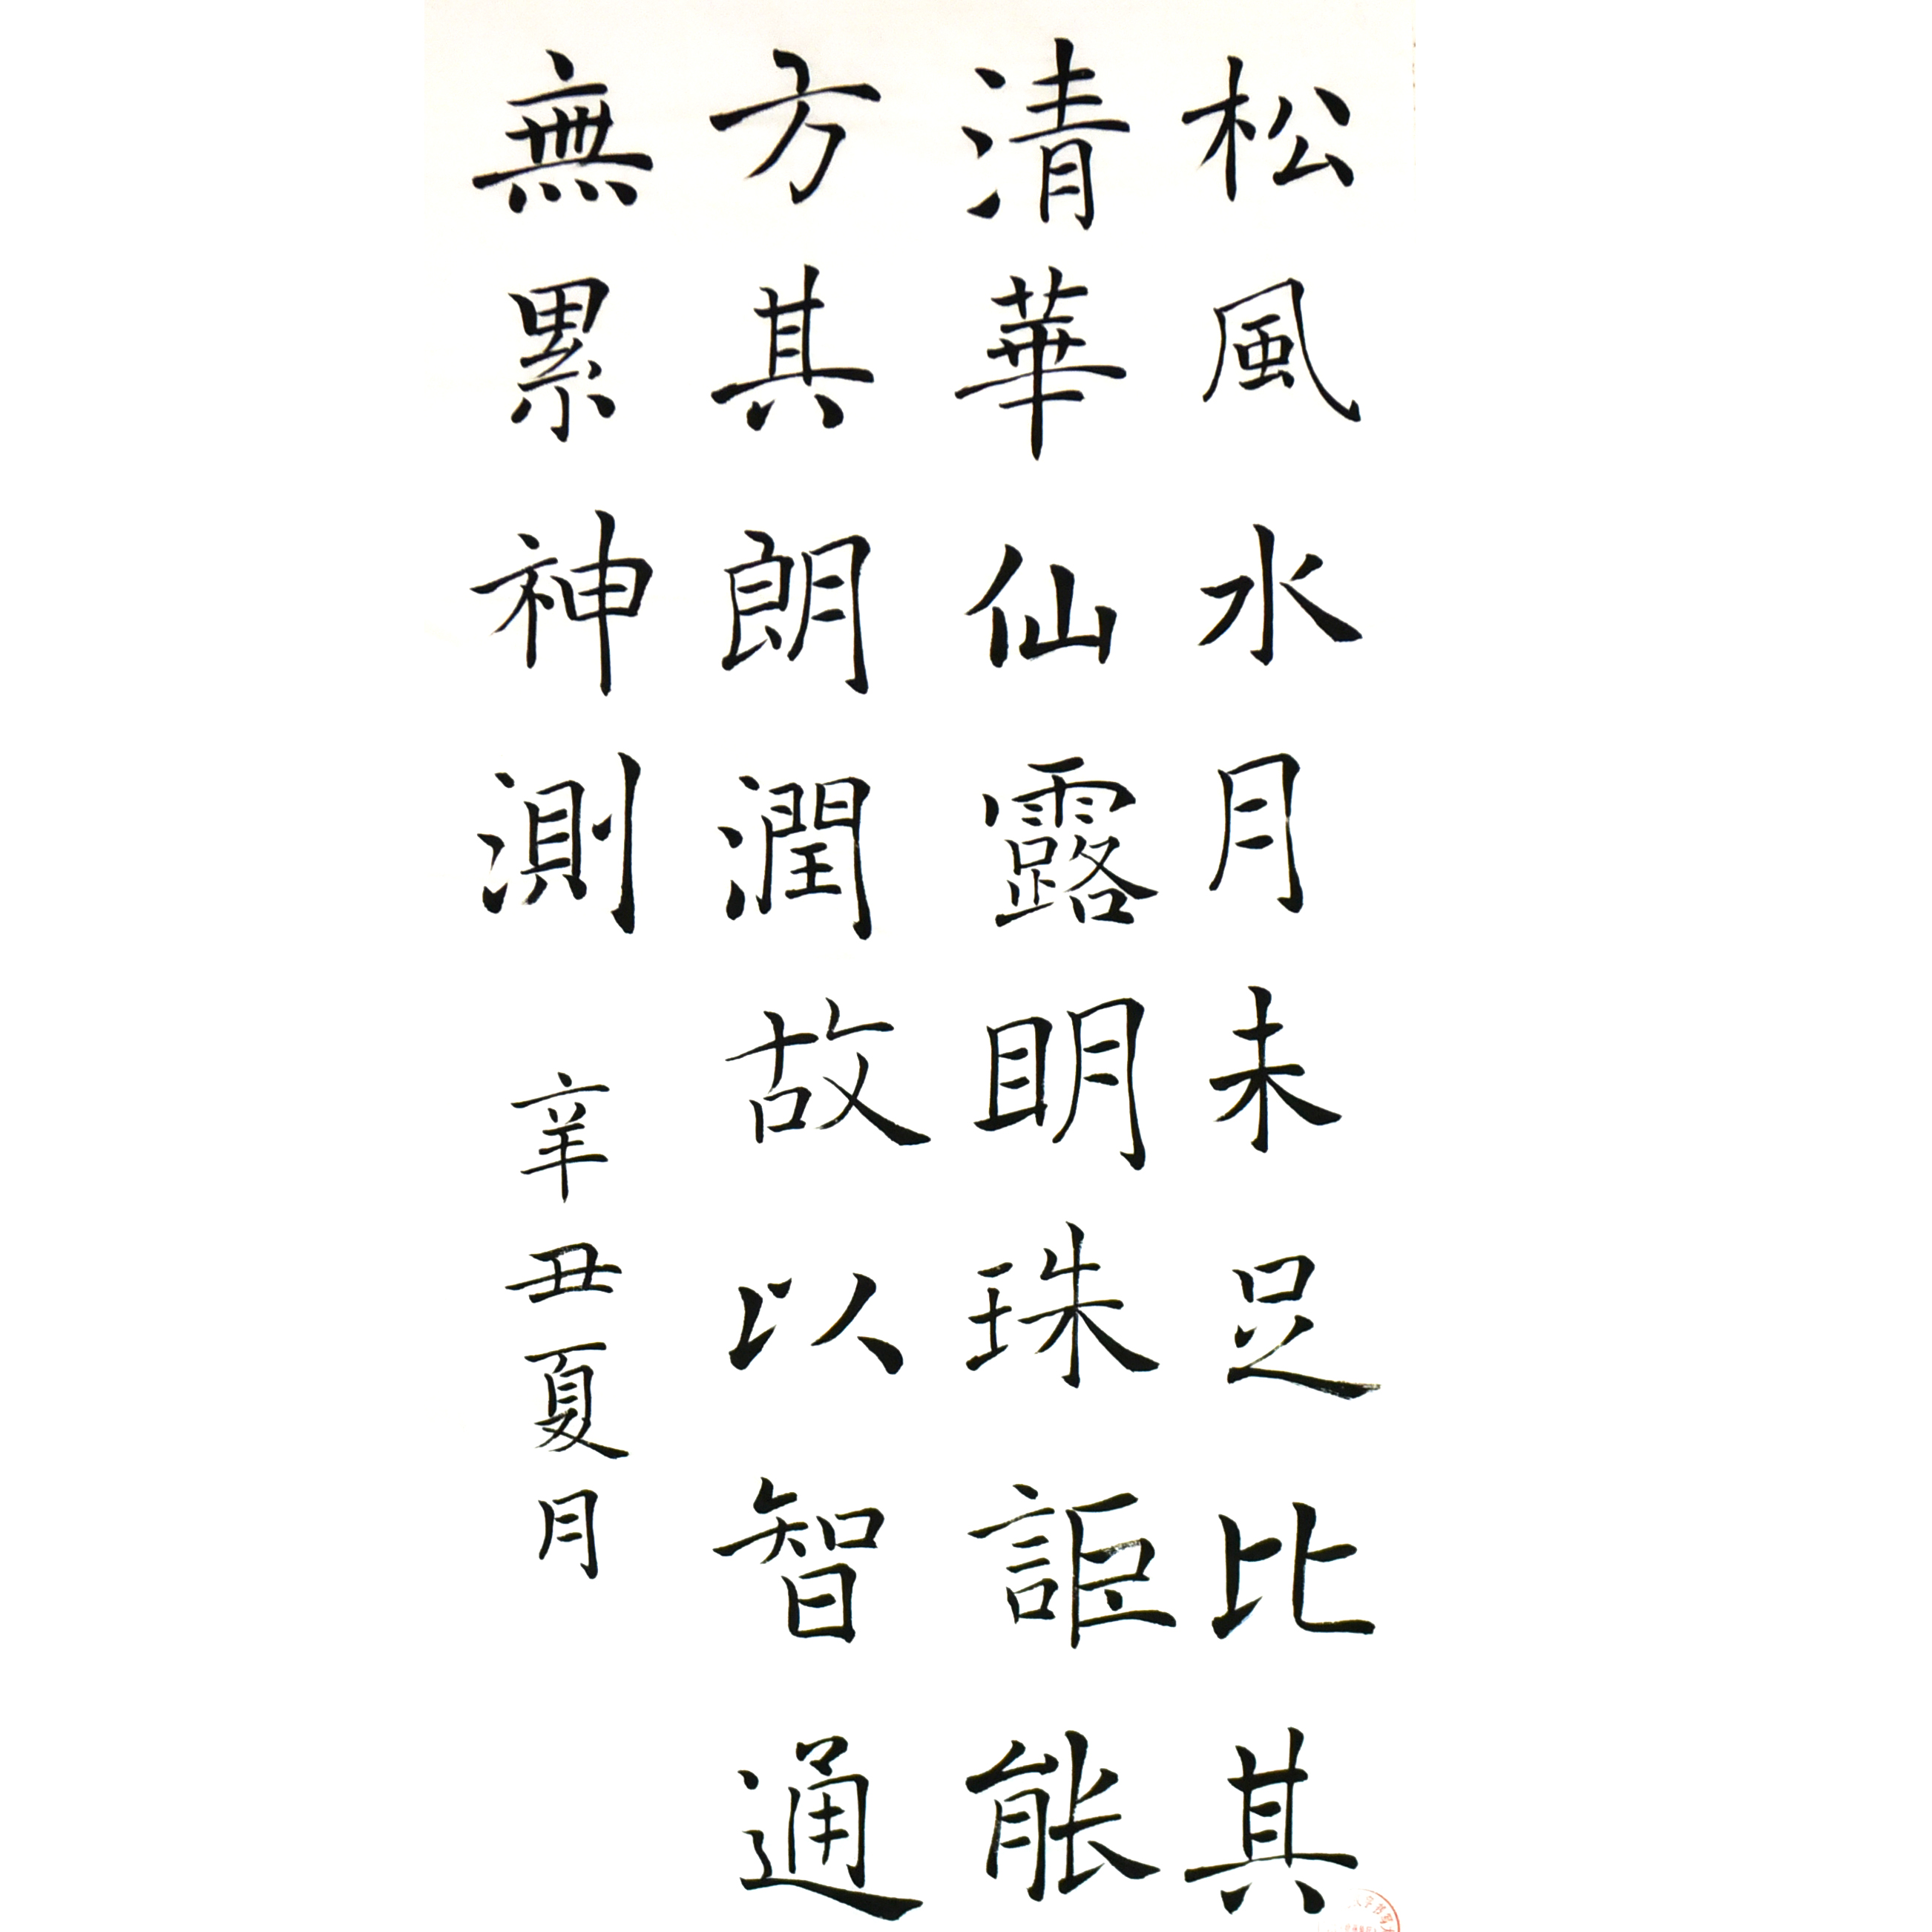 松風水月未足比其
清華仙露明珠詎能
方其朗潤故以智通
無累神測
辛丑夏月